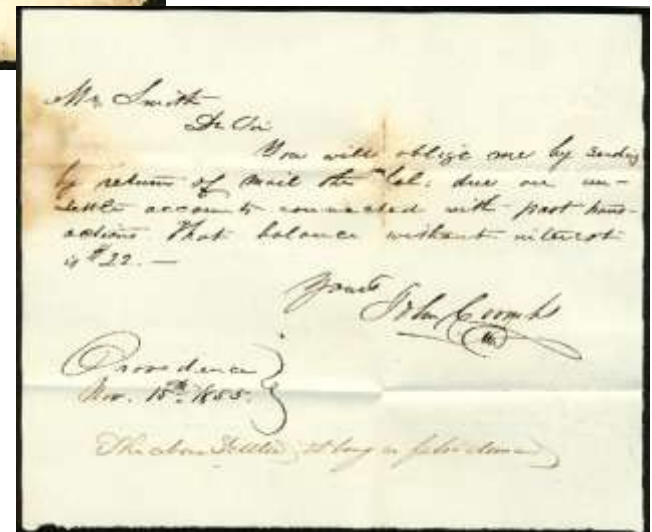 Mr. Smith
Dr Sir
You will oblige me by sending
by return of mail the bal. due on un-
settled accounts connected with past trans-
actions. That balance without interest
is $22. —
Yours
John Coombs
Providence
Nov. 15th 1855.
The above Settled, it being a false demand